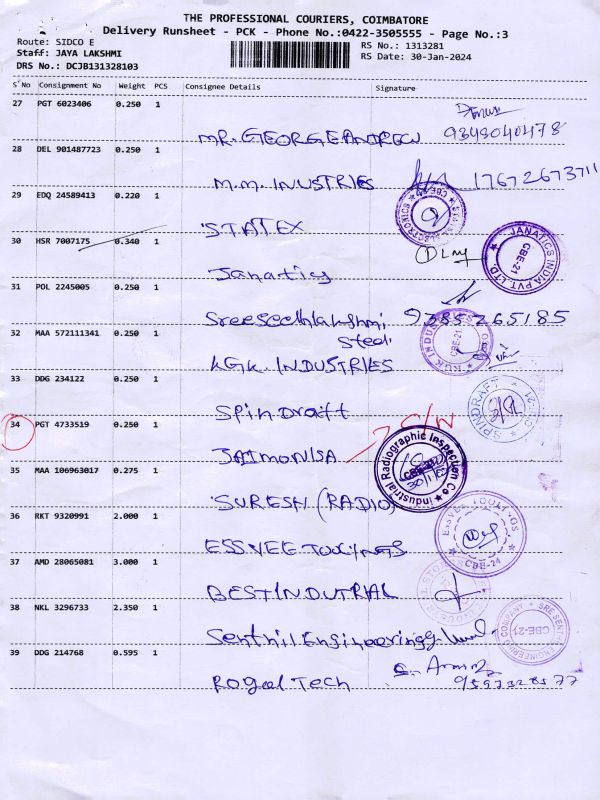 THE PROFESSIONAL COURIERS, COIMBATORE
Delivery Runsheet - PCK - Phone No.:0422-3505555 - Page No.:3
Route: SIDCO E
RS No.: 1313281
Staff: JAYA LAKSHMI
RS Date: 30-Jan-2024
DRS No.: DCJB131328103
S No Consignment No Weight PCS Consignee Details Signature
27 PGT 6023406 0.250 1
MR. GEORGE ANDREW
28 DEL 901487723 0.250 1
M.M. INUSTRIES
29 EDQ 24589413 0.220 1
STATEX
30 HSR 7007175 0.340 1
JANATICS INDIA PVT. LTD.
CBE-21
Janatics
31 POL 2245005 0.250 1
Sreeseethlakshmi 9385265185
Steel
32 MAA 572111341 0.250 1
KGK INDUSTRIES
CBE-21
KGK. INDUSTRIES
33 DDG 234122 0.250 1
SPINDRAFT
Spin Draft
34 PGT 4733519 0.250 1
JAIMONISA
Industrial Radiographic Inspection Co
35 MAA 106963017 0.275 1
SURESH (RADIO)
36 RKT 9320991 2.000 1
ESSVEE TOOLINGS
CBE-21
37 AMD 28065081 3.000 1
BEST INDUTRIAL
38 NKL 3296733 2.350 1
CBE-21
Senthil Engineering
39 DDG 214768 0.595 1
Rogal Tech